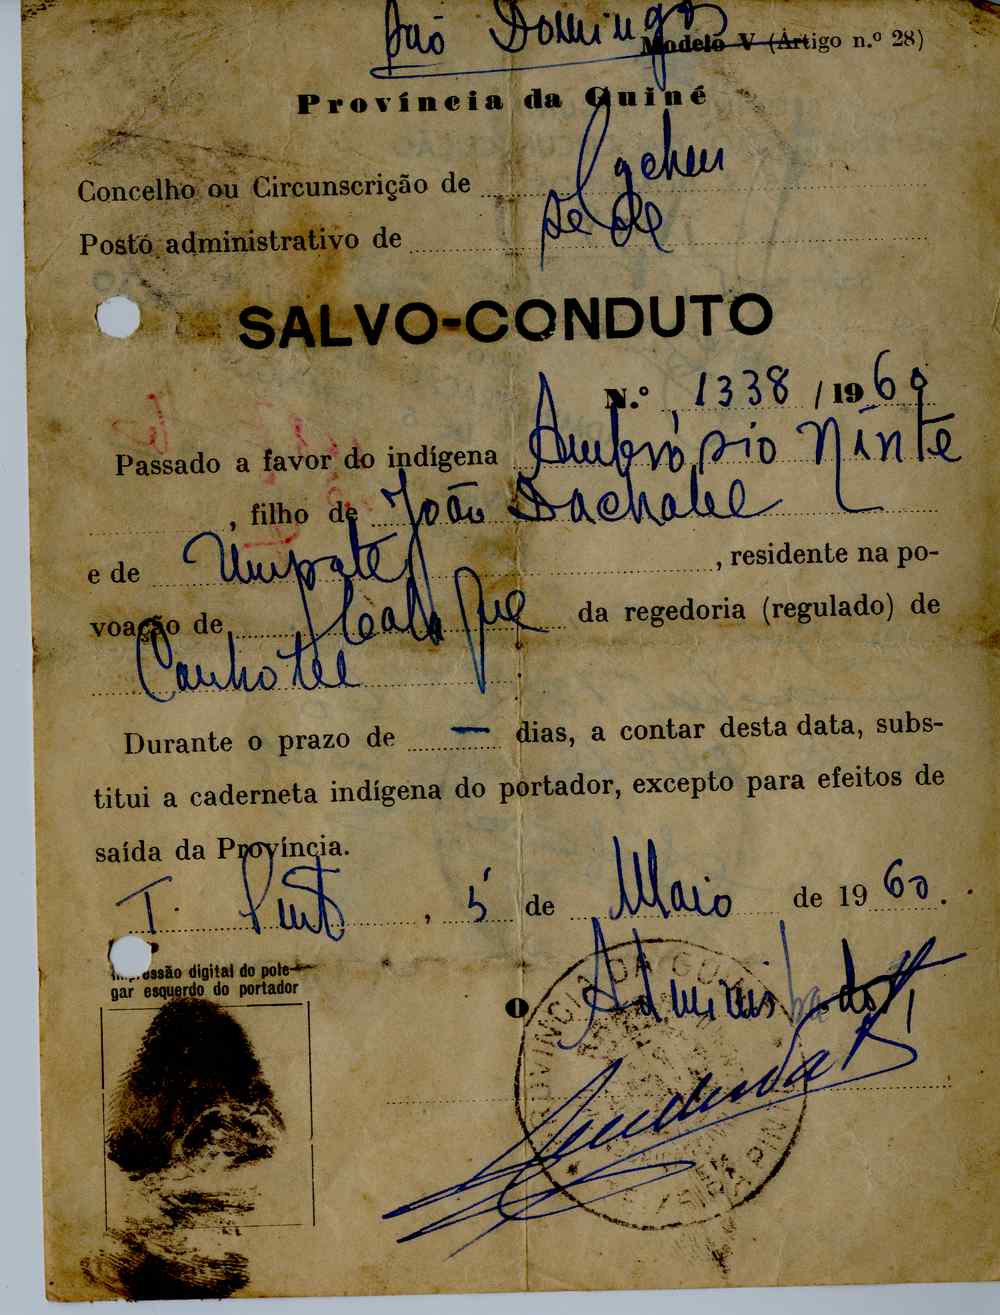 São Domingos
Modelo V (Artigo n.º 28)
Província da Guiné
Concelho ou Circunscrição de Cacheu
Posto administrativo de Sede
SALVO-CONDUTO
N.º 1338 / 1960
Passado a favor do indígena Ambrósio Ninte
, filho de João Dachalee
e de Umpate , residente na po-
voação de da regedoria (regulado) de
Canhotee
Durante o prazo de — dias, a contar desta data, subs-
titui a caderneta indígena do portador, excepto para efeitos de
saída da Província.
T. Pinto , 5 de Maio de 1960.
Impressão digital do pole-
gar esquerdo do portador
O Administrador
PROVÍNCIA DA GUINÉ